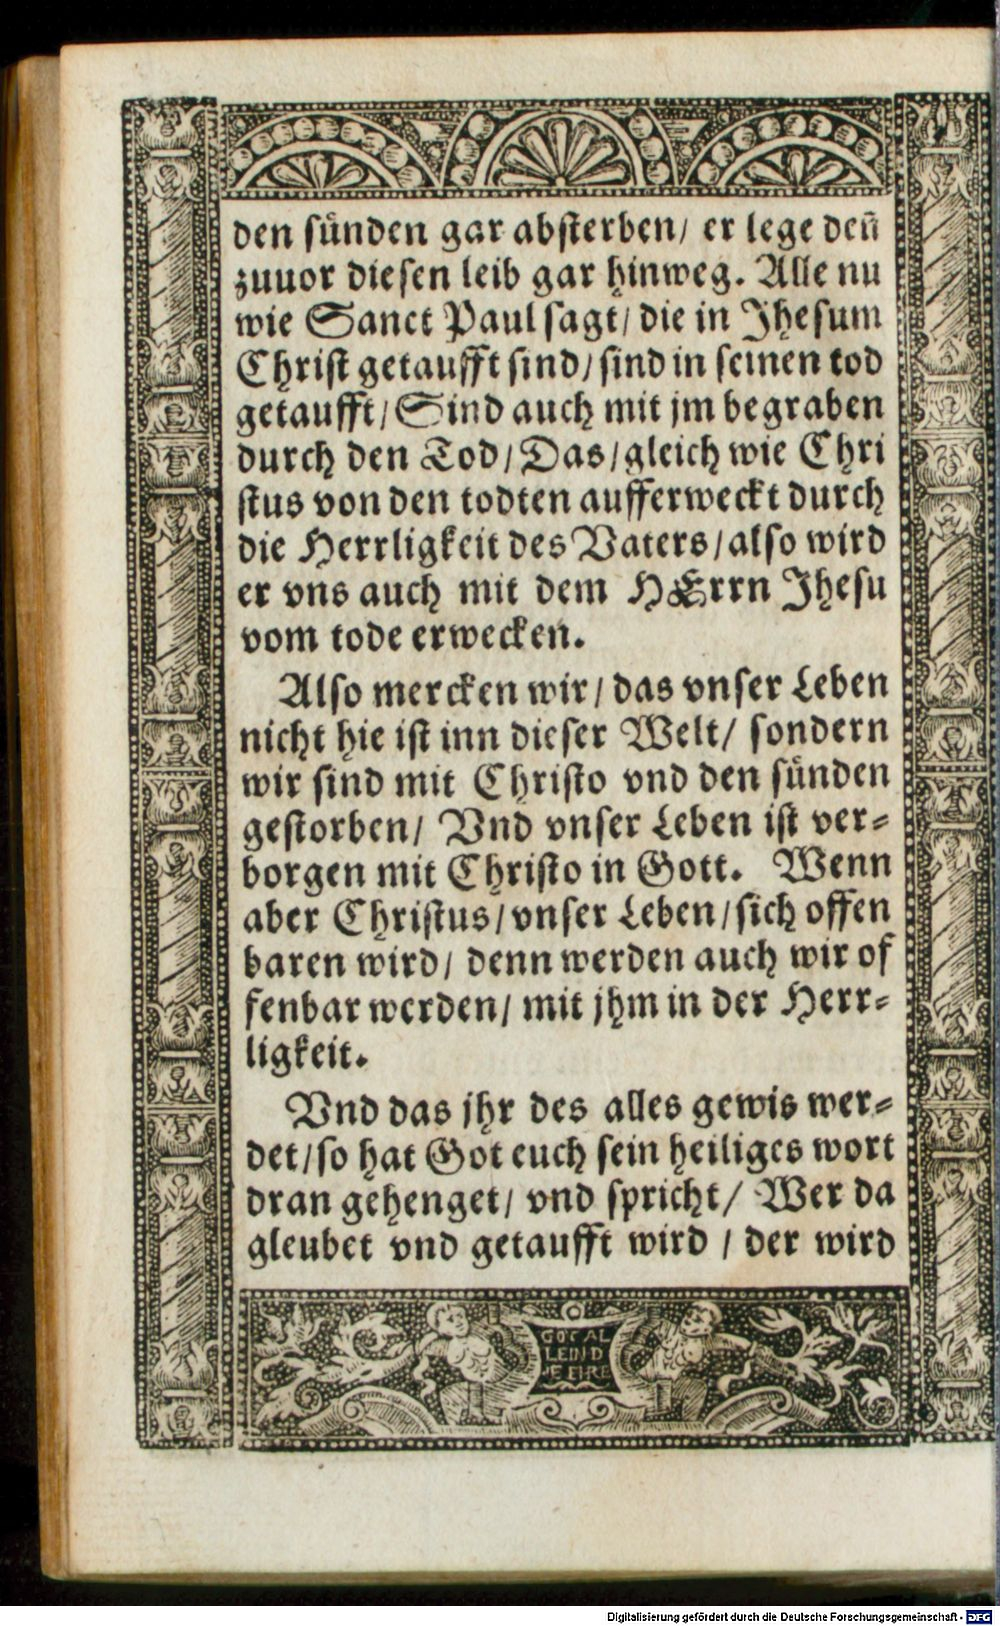 den sünden gar absterben/ er lege deñ
zuuor diesen leib gar hinweg. Alle nu
wie Sanct Paul sagt/ die in Jhesum
Christ getaufft sind/ sind in seinen tod
getaufft/ Sind auch mit jm begraben
durch den Tod/ Das/ gleich wie Chri
stus von den todten aufferweckt durch
die Herrligkeit des Vaters/ also wird
er vns auch mit dem HErrn Jhesu
vom tode erwecken.
Also mercken wir/ das vnser Leben
nicht hie ist inn dieser Welt/ sondern
wir sind mit Christo vnd den sünden
gestorben/ Vnd vnser Leben ist ver-
borgen mit Christo in Gott. Wenn
aber Christus/ vnser Leben/ sich offen
baren wird/ denn werden auch wir of
fenbar werden/ mit jhm in der Herr-
ligkeit.
Vnd das jhr des alles gewis wer-
det/ so hat Got euch sein heiliges wort
dran gehenget/ vnd spricht/ Wer da
gleubet vnd getaufft wird / der wird
GOT AL
LEIN D
IE EHRE
Digitalisierung gefördert durch die Deutsche Forschungsgemeinschaft - DFG